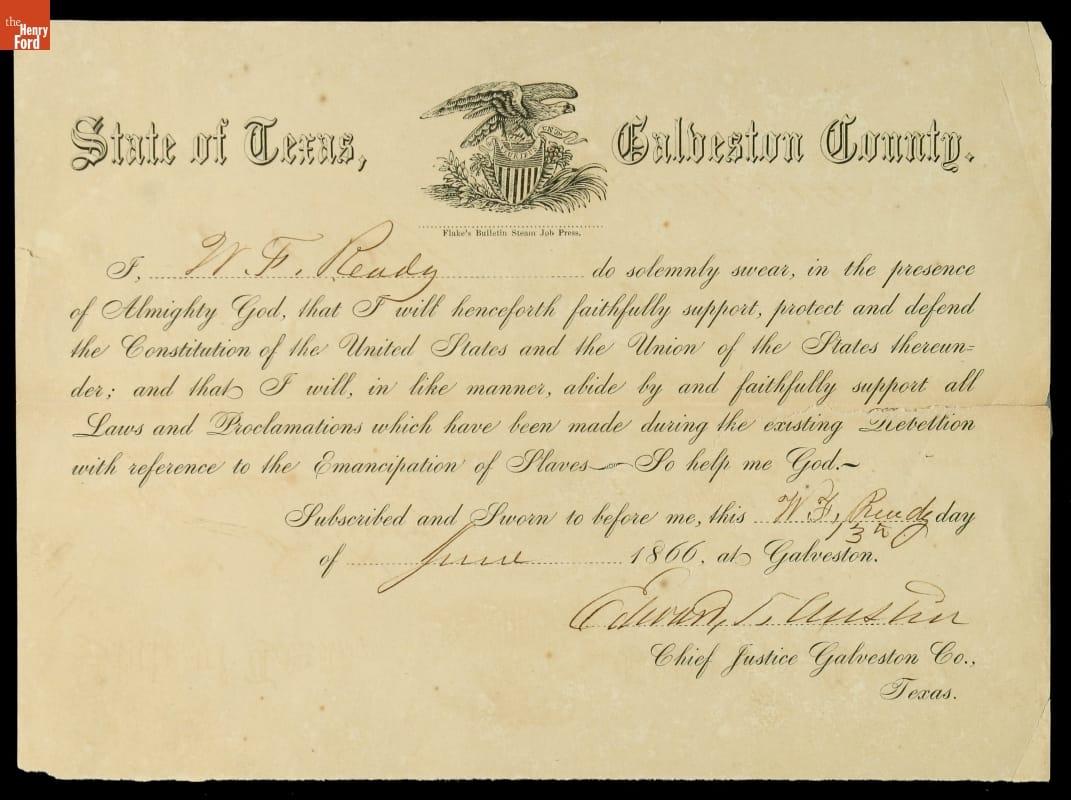 the
Henry
Ford
State of Texas, Galveston County.
Flake's Bulletin Steam Job Press.
I, W. F. Ready do solemnly swear, in the presence
of Almighty God, that I will henceforth faithfully support, protect and defend
the Constitution of the United States and the Union of the States thereun=
der; and that I will, in like manner, abide by and faithfully support all
Laws and Proclamations which have been made during the existing Rebellion
with reference to the Emancipation of Slaves—So help me God.—
Subscribed and Sworn to before me, this W. F. Ready day
of June 1866, at Galveston.
Edward T. Austin
Chief Justice Galveston Co.,
Texas.